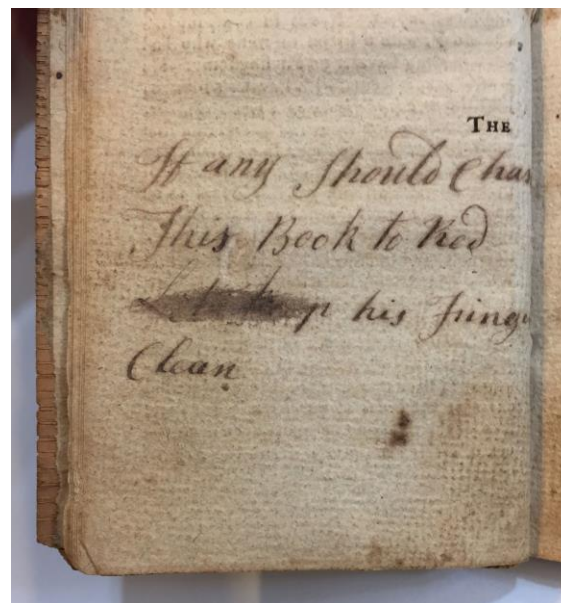 THE
If any Should Chan
This Book to Red
his fring
Clean